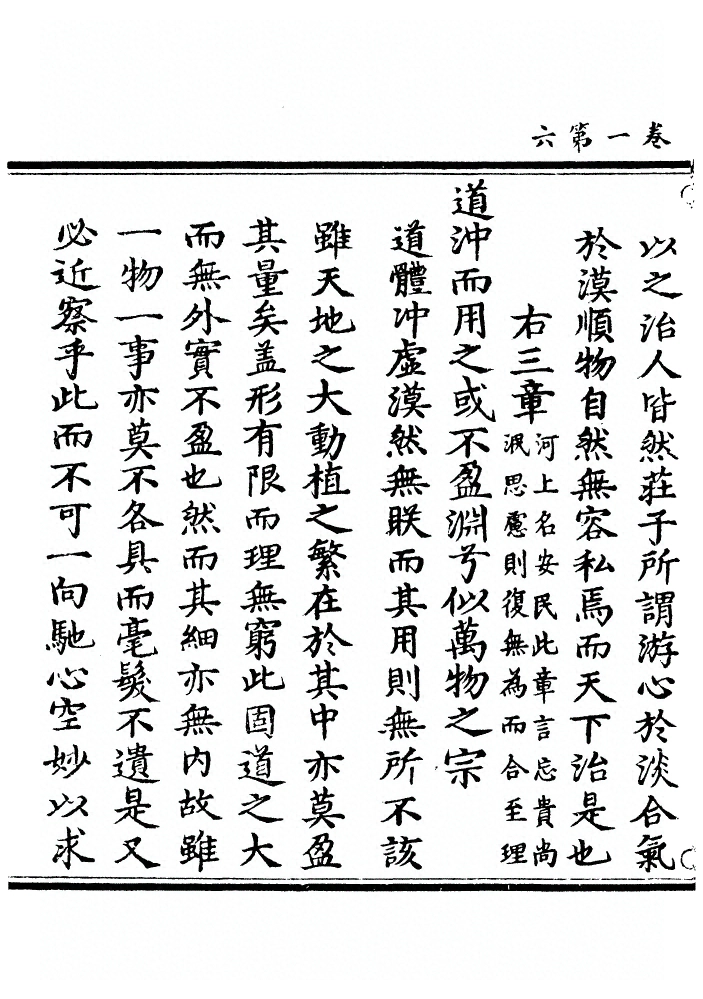 卷一第六
以之治人皆然莊子所謂游心於淡合氣
於漠順物自然無容私焉而天下治是也
右三章河上名安民此章言忘貴尚
泯思慮則復無為而合至理
道沖而用之或不盈淵兮似萬物之宗
道體冲虛漠然無眹而其用則無所不該
雖天地之大動植之繁在於其中亦莫盈
其量矣盖形有限而理無窮此固道之大
而無外實不盈也然而其細亦無内故雖
一物一事亦莫不各具而毫髮不遺是又
必近察乎此而不可一向馳心空妙以求